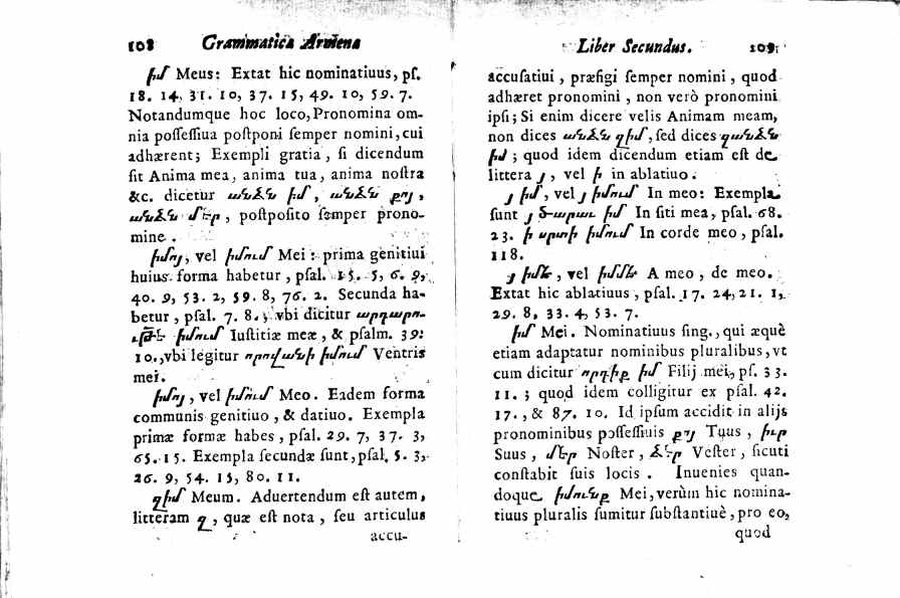 108 Grammatica Armena
իմ Meus: Extat hic nominatiuus, pſ.
18. 14, 31. 10, 37. 15, 49. 10, 59. 7.
Notandumque hoc loco, Pronomina om-
nia poſſeſſiua poſtponi ſemper nomini, cui
adhærent; Exempli gratia, ſi dicendum
ſit Anima mea, anima tua, anima noſtra
&c. dicetur անձն իմ, անձն քոյ,
անձն մեր, poſtpoſito ſemper prono-
mine.
իմոյ, vel իմում Mei: prima genitiui
huius forma habetur, pſal. 15. 5, 6. 9,
40. 9, 53. 2, 59. 8, 76. 2. Secunda ha-
betur, pſal. 7. 8. vbi dicitur արդարու-
թե իմում Iuſtitiæ meæ, & pſalm. 39.
10., vbi legitur որովայնի իմում Ventris
mei.
իմոյ, vel իմում Meo. Eadem forma
communis genitiuo, & datiuo. Exempla
primæ formæ habes, pſal. 29. 7, 37. 3,
65. 15. Exempla ſecundæ ſunt, pſal. 5. 3,
26. 9, 54. 15, 80. 11.
զիմ Meum. Aduertendum eſt autem,
litteram զ, quæ eſt nota, ſeu articulus
accu-
Liber Secundus. 109
accuſatiui, præfigi ſemper nomini, quod
adhæret pronomini, non verò pronomini
ipſi; Si enim dicere velis Animam meam,
non dices անձն զիմ, ſed dices զանձն
իմ; quod idem dicendum etiam eſt de
littera յ, vel ի in ablatiuo.
յ իմ, vel յ իմում In meo: Exempla
ſunt յ ծարաւ իմ In ſiti mea, pſal. 68.
23. ի սրտի իմում In corde meo, pſal.
118.
յ իմմէ, vel իմմէ A meo, de meo.
Extat hic ablatiuus, pſal. 17. 24, 21. 1,
29. 8, 33. 4, 53. 7.
իմ Mei. Nominatiuus ſing., qui æquè
etiam adaptatur nominibus pluralibus, vt
cum dicitur որդիք իմ Filij mei, pſ. 33.
11.; quod idem colligitur ex pſal. 42.
17., & 87. 10. Id ipſum accidit in alijs
pronominibus poſſeſſiuis քոյ Tuus, իւր
Suus, մեր Noſter, ձեր Veſter, ſicuti
conſtabit ſuis locis. Inuenies quan-
doque իմունք Mei, verùm hic nomina-
tiuus pluralis ſumitur ſubſtantiuè, pro eo,
quod